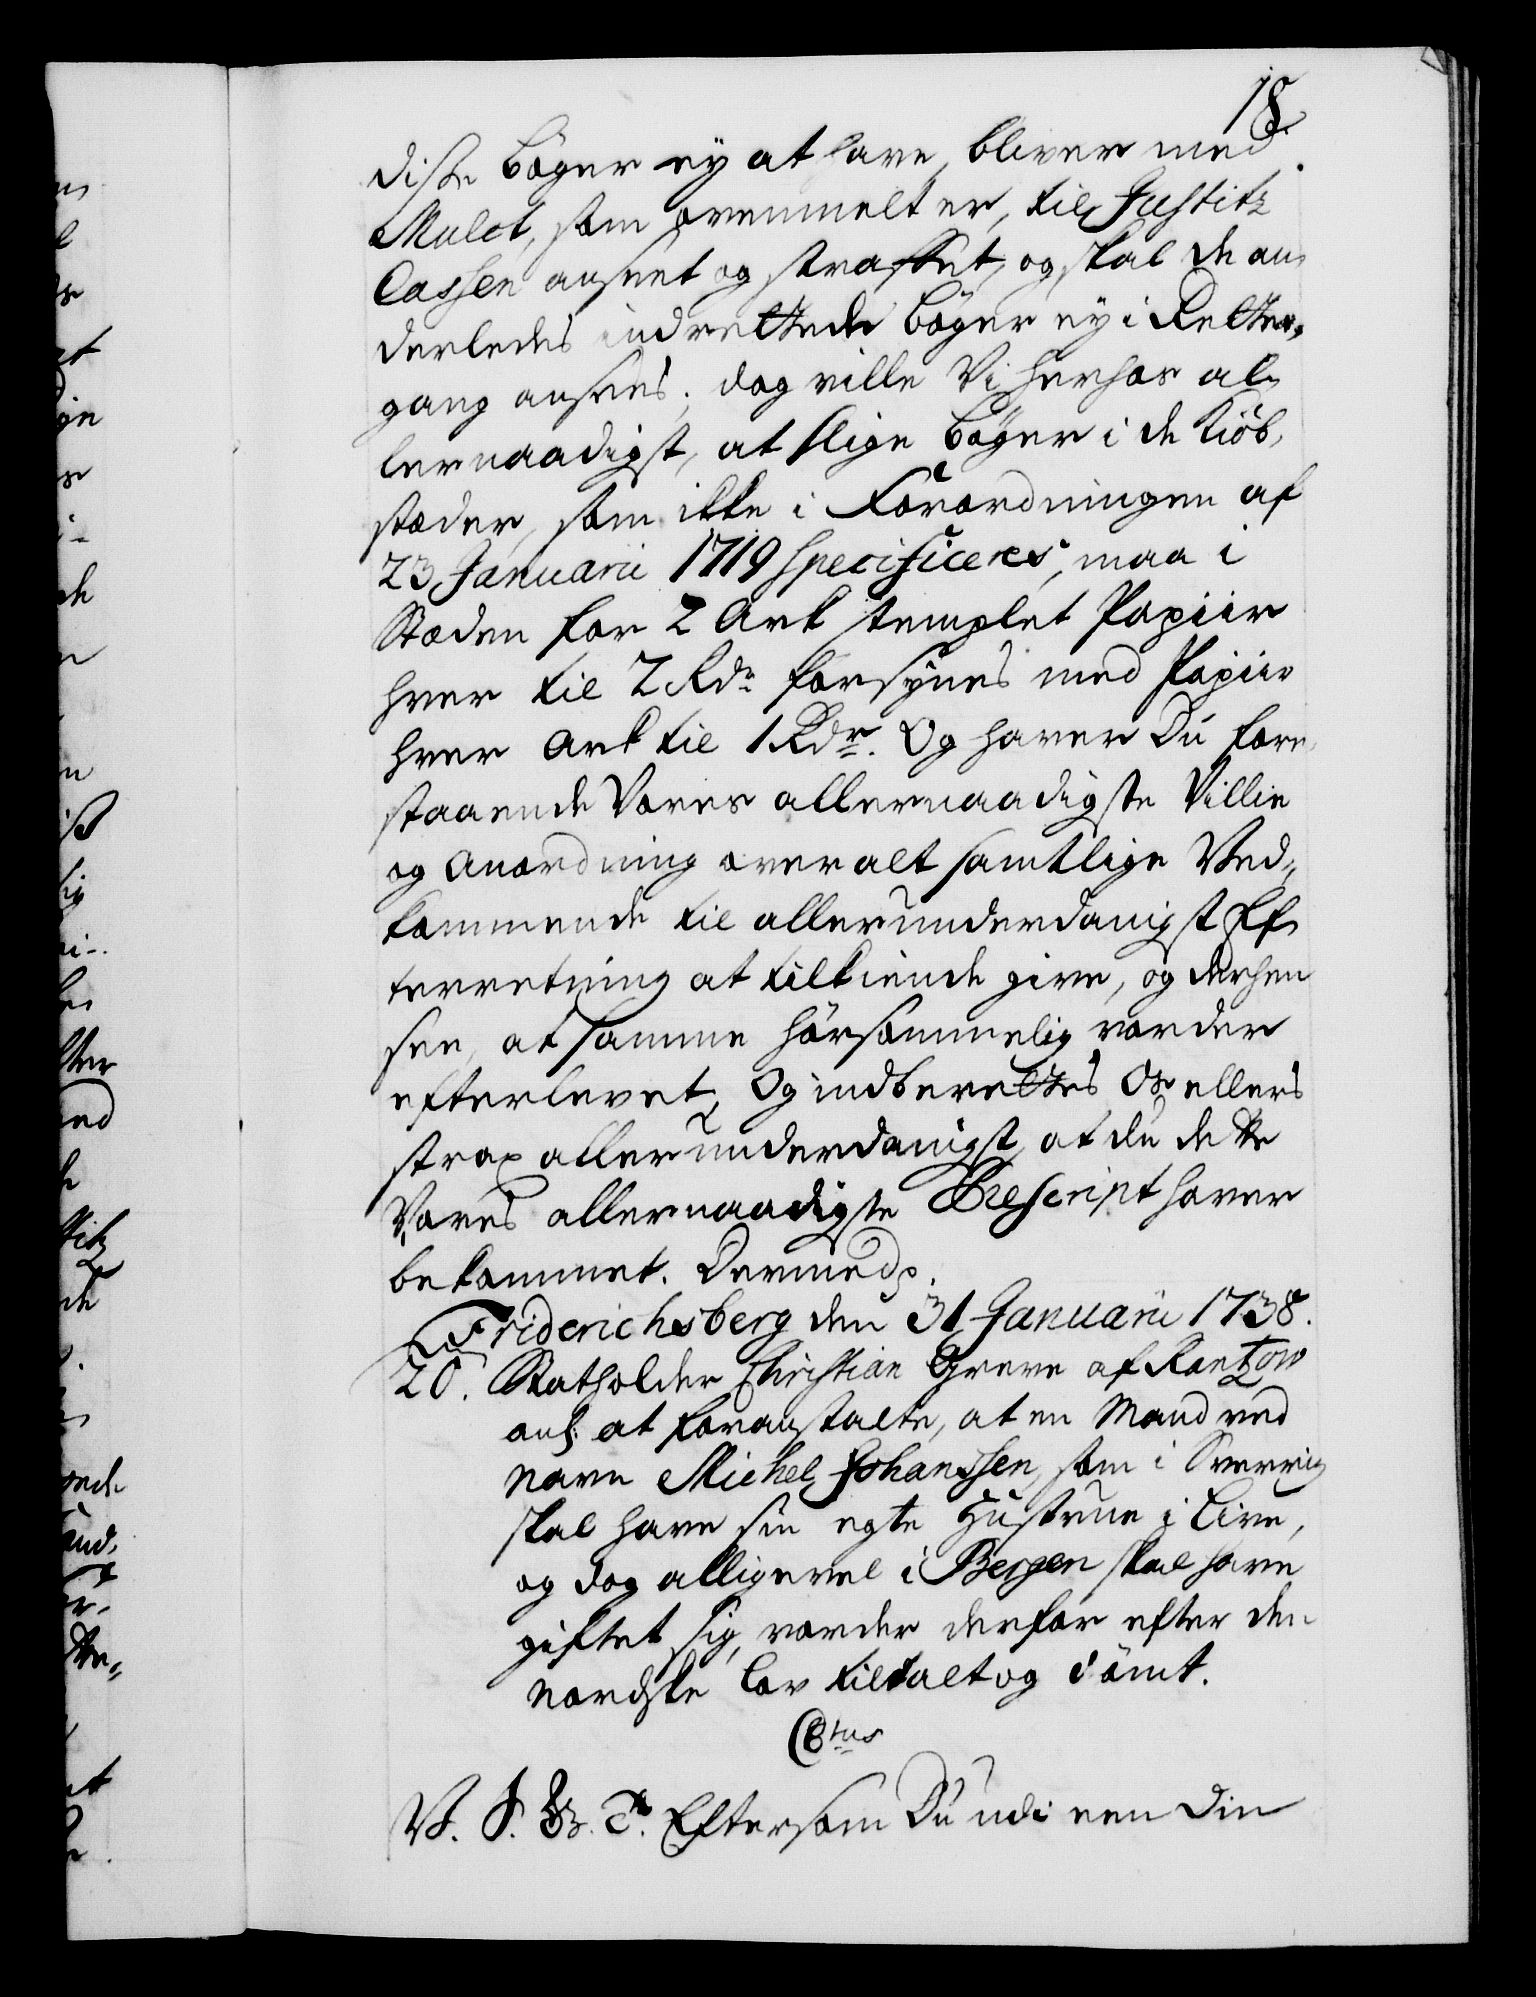 18.
disse bøger ey at have, bliver med
Mulct, som ovenmelt er, til Justitz
Cassen anseet og straffet, og skal de an¬
derledes indrettede bøger ey i Retter,
gang ansees; dog ville Vi herhos al¬
lernaadigst, at slige bøger i de Kiöb,
stæder, som ikke i Forordningen af
23 Januarii 1719 specificeres, maa i
Stæden for 2 Ark stemplet Papiir
hver til 2 Rdr forsÿnes med Papiir
hver Ark til 1 Rdr. Og haver Du fore,
staaende Vores allernaadigste Villie
og Anordning over alt samtlige Ved,,
kommende til allerunderdanigst Ef¬
terretning at tilkiende give, og derhen
see, at samme hörsommelig vorder
efterlevet, Og indberettes Os ellers
strax allerunderdanigst, at du dette
Vores allernaadigste Rescript haver
bekommet. Dermed p.
Friderichsberg den 31 Januarii 1738.
20. Statholder Christian Greve af Rantzow
anl. at foranstalte, at en Mand ved
navn Michel Johanssen, som i Sverrig
skal have sin egte Hustrue i Live,
og dog alligevel i Bergen skal have
giftet sig, vorder derfor efter den
nordske Lov tiltalt og dömt.
C 6tus
V. S. G. T. Eftersom Du udi een din